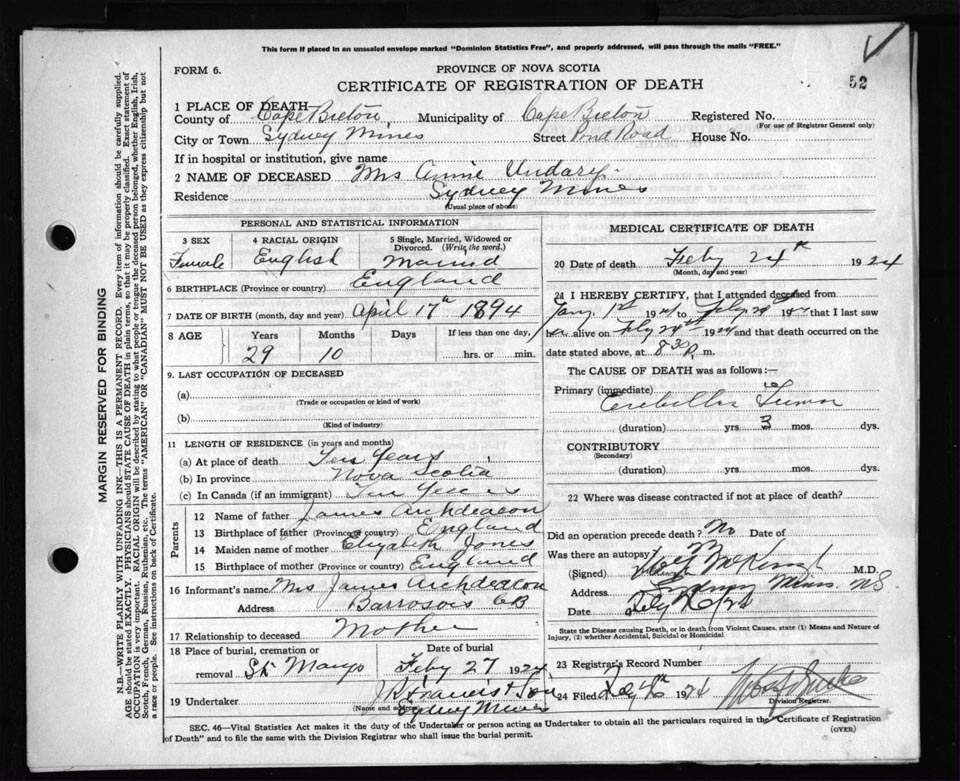 This form if placed in an unsealed envelope marked "Dominion Statistics Free", and properly addressed, will pass through the mails "FREE."
FORM 6.
PROVINCE OF NOVA SCOTIA
CERTIFICATE OF REGISTRATION OF DEATH
52
1 PLACE OF DEATH
County of Cape Breton Municipality of Cape Breton Registered No.
(For use of Registrar General only)
City or Town Sydney Mines Street Pond Road House No.
If in hospital or institution, give name
2 NAME OF DECEASED Mrs Annie
Residence Sydney Mines
(Usual place of abode)
PERSONAL AND STATISTICAL INFORMATION
3 SEX Female
4 RACIAL ORIGIN English
5 Single, Married, Widowed or Divorced. (Write the word.) Married
6 BIRTHPLACE (Province or country) England
7 DATE OF BIRTH (month, day and year) April 17th 1894
8 AGE Years Months Days If less than one day,
29 10 hrs. or min.
9. LAST OCCUPATION OF DECEASED
(a)
(Trade or occupation or kind of work)
(b)
(Kind of industry)
11 LENGTH OF RESIDENCE (in years and months)
(a) At place of death Ten Years
(b) In province Nova Scotia
(c) In Canada (if an immigrant) Ten Years
Parents
12 Name of father James Archdeacon
13 Birthplace of father (Province or country) England
14 Maiden name of mother Elizabeth Jones
15 Birthplace of mother (Province or country) England
16 Informant's name Mrs James Archdeacon
Address CB
17 Relationship to deceased Mother
18 Place of burial, cremation or removal St Marys
Date of burial Feby 27 1924
19 Undertaker J R Francis & Son
(Name and address) Sydney Mines
MEDICAL CERTIFICATE OF DEATH
20 Date of death Feby 24th 1924
(Month, day and year)
21 I HEREBY CERTIFY, that I attended deceased from
Jany. 1st 1924 to Feby 24th 1924 that I last saw
her alive on Feby 24th 1924 and that death occurred on
date stated above, at 8.30 P. m.
The CAUSE OF DEATH was as follows:—
Primary (immediate)
Tumor
(duration) yrs 3 mos. dys.
CONTRIBUTORY
(Secondary)
(duration) yrs. mos. dys.
22 Where was disease contracted if not at place of death?
Did an operation precede death? No Date of
Was there an autopsy?
(Signed) M.D.
Address Sydney Mines NS
Date
State the Disease causing Death, or in death from Violent Causes, state (1) Means and Nature of
Injury, (2) whether Accidental, Suicidal or Homicidal
23 Registrar's Record Number
24 Filed
Division Registrar.
SEC. 46—Vital Statistics Act makes it the duty of the Undertaker or person acting as Undertaker to obtain all the particulars required in the "Certificate of Registration
of Death" and to file the same with the Division Registrar who shall issue the burial permit.
(OVER)
MARGIN RESERVED FOR BINDING
N.B.—WRITE PLAINLY WITH UNFADING INK—THIS IS A PERMANENT RECORD. Every item of information should be carefully supplied.
AGE should be stated EXACTLY. PHYSICIANS should STATE CAUSE OF DEATH in plain terms, so that it may be properly classified. Exact statement of
OCCUPATION is very important. RACIAL ORIGIN will be described by stating to what people or tongue the deceased person belonged, whether English, Irish,
Scotch, French, German, Russian, Ruthenian, etc. The terms "AMERICAN" OR "CANADIAN" MUST NOT BE USED as they express citizenship but not
a race or people. See instructions on back of Certificate.